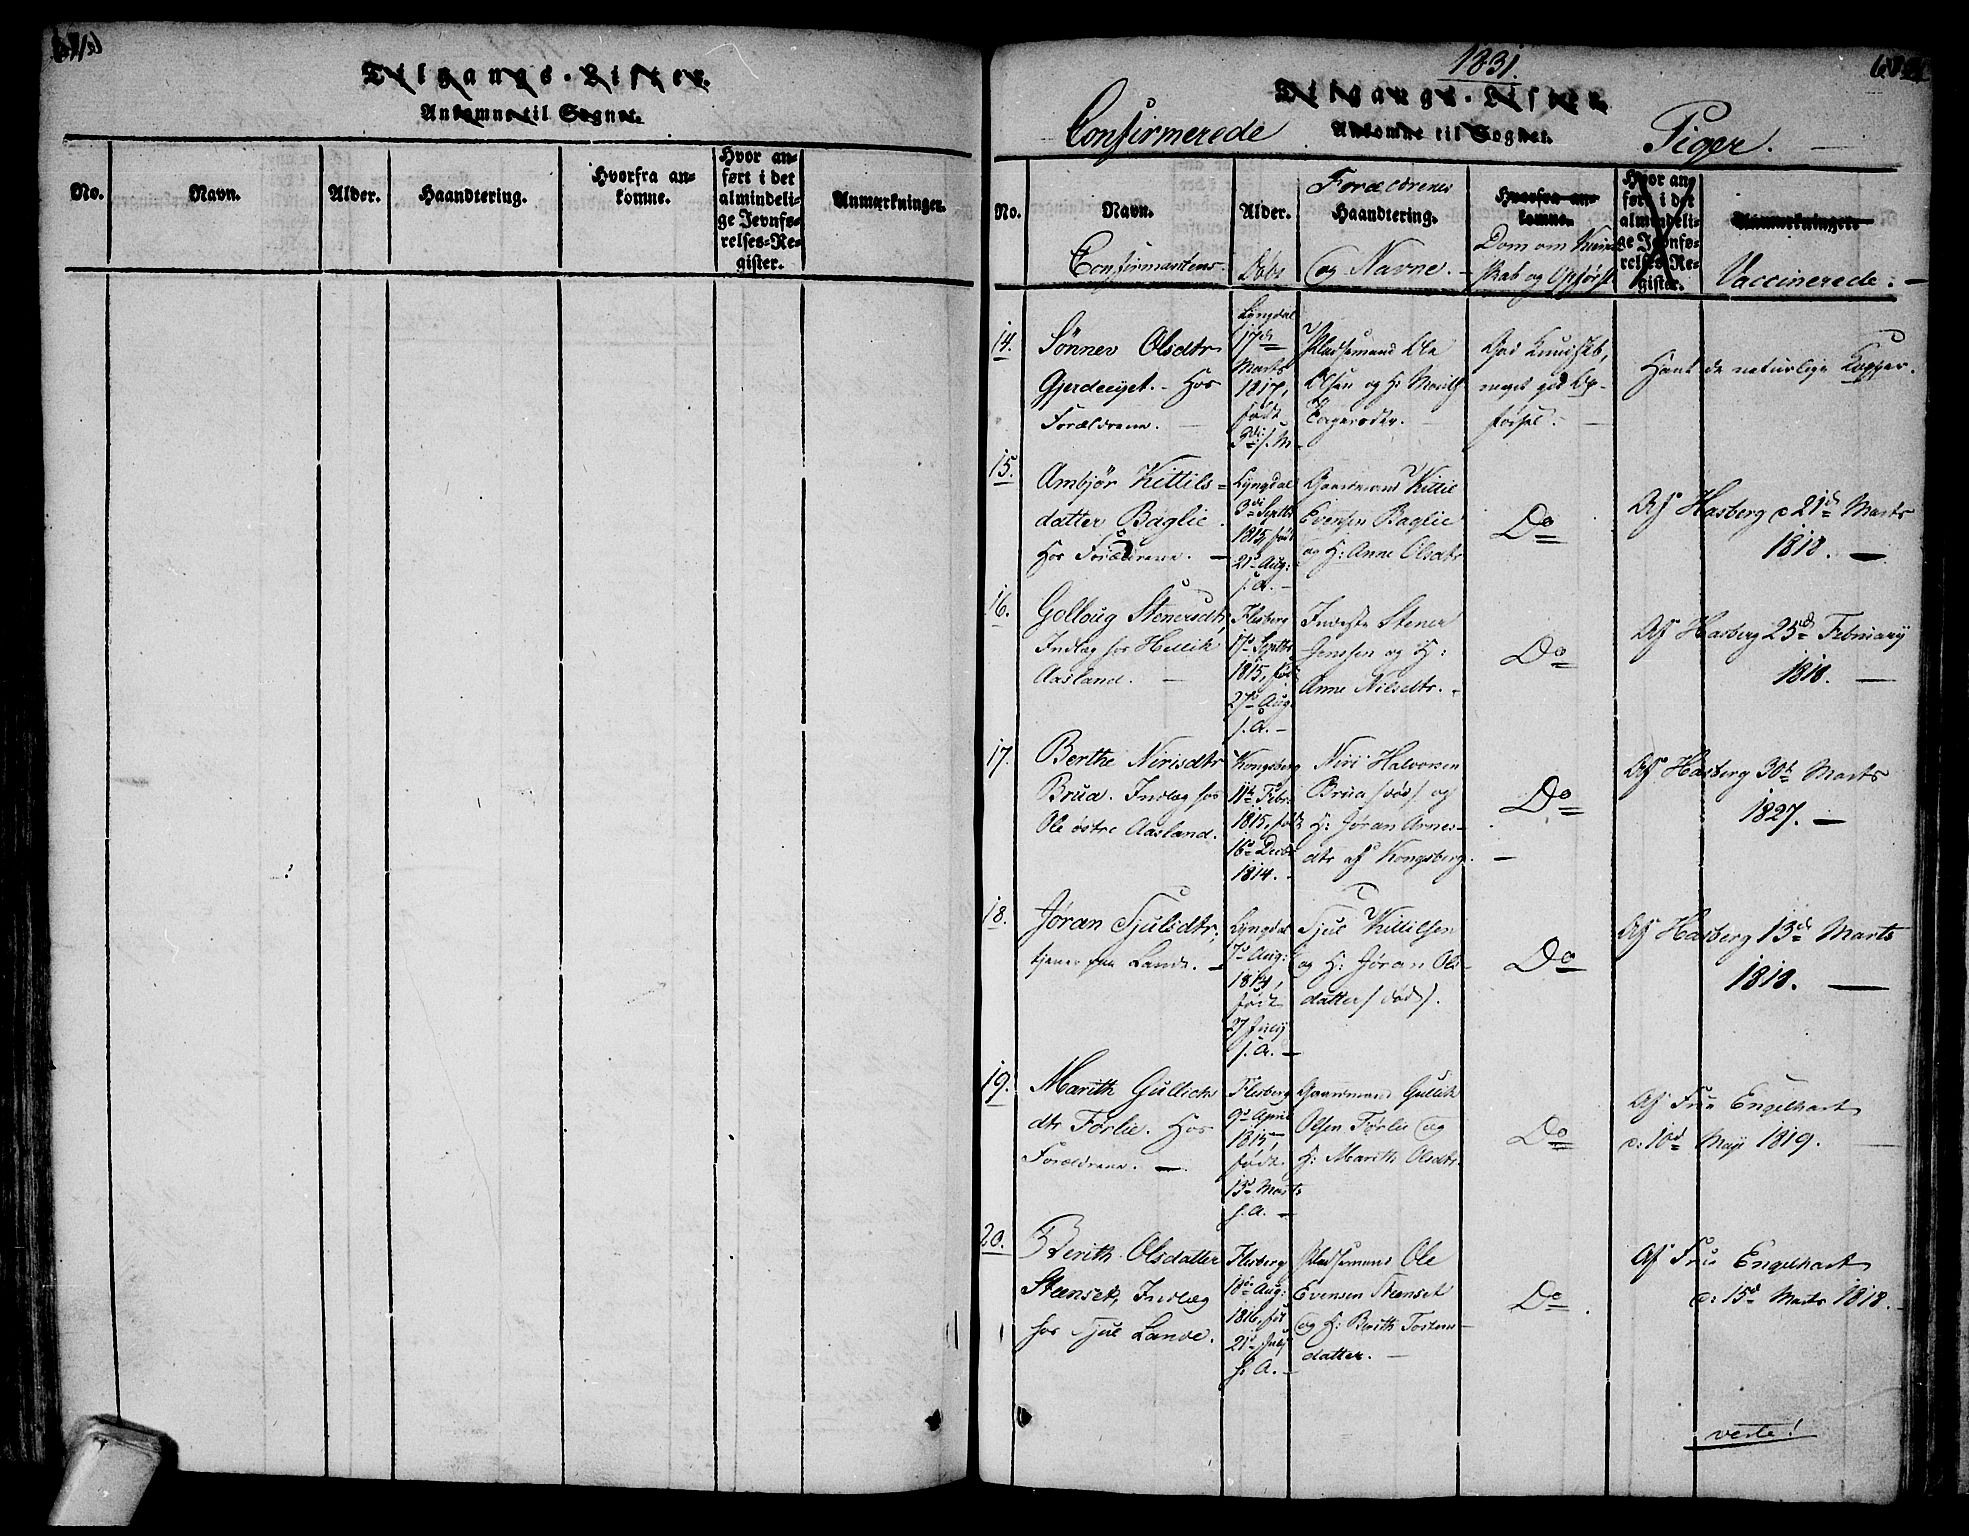 Tilgangs-Lister.
Ankomne til Sognet.
No.
Navn.
Alder.
Haandtering.
Hvorfra an-
komne.
Hvor an-
ført i det
almindeli-
ge Jevnfø-
relses-Re-
gister.
Anmærkninger.
1831.
Tilgangs-Lister.
Confirmerede
Ankomne til Sognet.
Piger.
No.
Navn.
Confirmantens
Alder.
Døbt
Forældrenes
Haandtering.
og Navne.
Hvorfra an-
komne.
Dom om Kund-
skab og Opførs:
Hvor an-
ført i det
almindeli-
ge Jevnfø-
relses-Re-
gister.
Anmærkninger.
Vaccinerede.
14.
Sønnev Olsdtr
Gjerdeeyet. Hos
Forældrene.
Lyngdal
17d
Marts
1817,
født
Pladsemand Ole
Olsen og H:
God Kundskb,
meget god Op-
førsel.
Havt de naturlige Kopper.
15.
Ambjør Kittils-
datter Baglie.
Hos Forældrene.
Lyngdal
3di Septbr
1815, født
21d Aug:
s. A.
Gaardmand Kittil
Evensen Baglie
og H: Anne Olsdtr
Do
Af Hasberg d: 21d Marts
1818.
16.
Golloug Stenersdtr,
Indlæg hos Hellik
Aasland.
Flesberg
17d Septbr
1815, fød:
27d Aug.
s. A.
Inderste Stener
Jenssen og H:
Anne Nilsdtr.
Do
Af Hasberg 25d February
1818.
17.
Berthe Nirisdtr
Brua. Indlæg hos
Ole østre Aasland.
Kongsberg
11te Febr.
1815, født
16d Decbr
1814.
Niri Halvorsen
Brua (død) og
H: Jøran Arnes-
dtr af Kongsberg.
Do
Af Hasberg 30te Marts
1827.
18.
Jøran Tjulsdtr,
tjener paa Lande.
Lyngdal
7d Aug:
1814,
født
27 July
s. A.
Tjul Kittilsen
og H: Jøran Ols-
datter (død).
Do
Af Hasberg 13d Marts
1818.
19.
Marith Gullicks
dtr Førlie. Hos
Forældrene.
Flesberg
9d April
1815,
født
15d Marts
s. A.
Gaardmand Gullik
Olsen Førlie og
H: Marith Olsdtr.
Do
Af Frue Engelhart
d: 10d Maji 1819.
20.
Berith Olsdatter
Steenset, Indlæg
hos Tjul Lande.
Flesberg
18de Aug:
1816, fød
21d July
s. A.
Pladsemand Ole
Evensen Steenset
og H: Berith Tostens-
datter.
Do
Af Frue Engelhart
d: 15d Marts 1818.
verte!